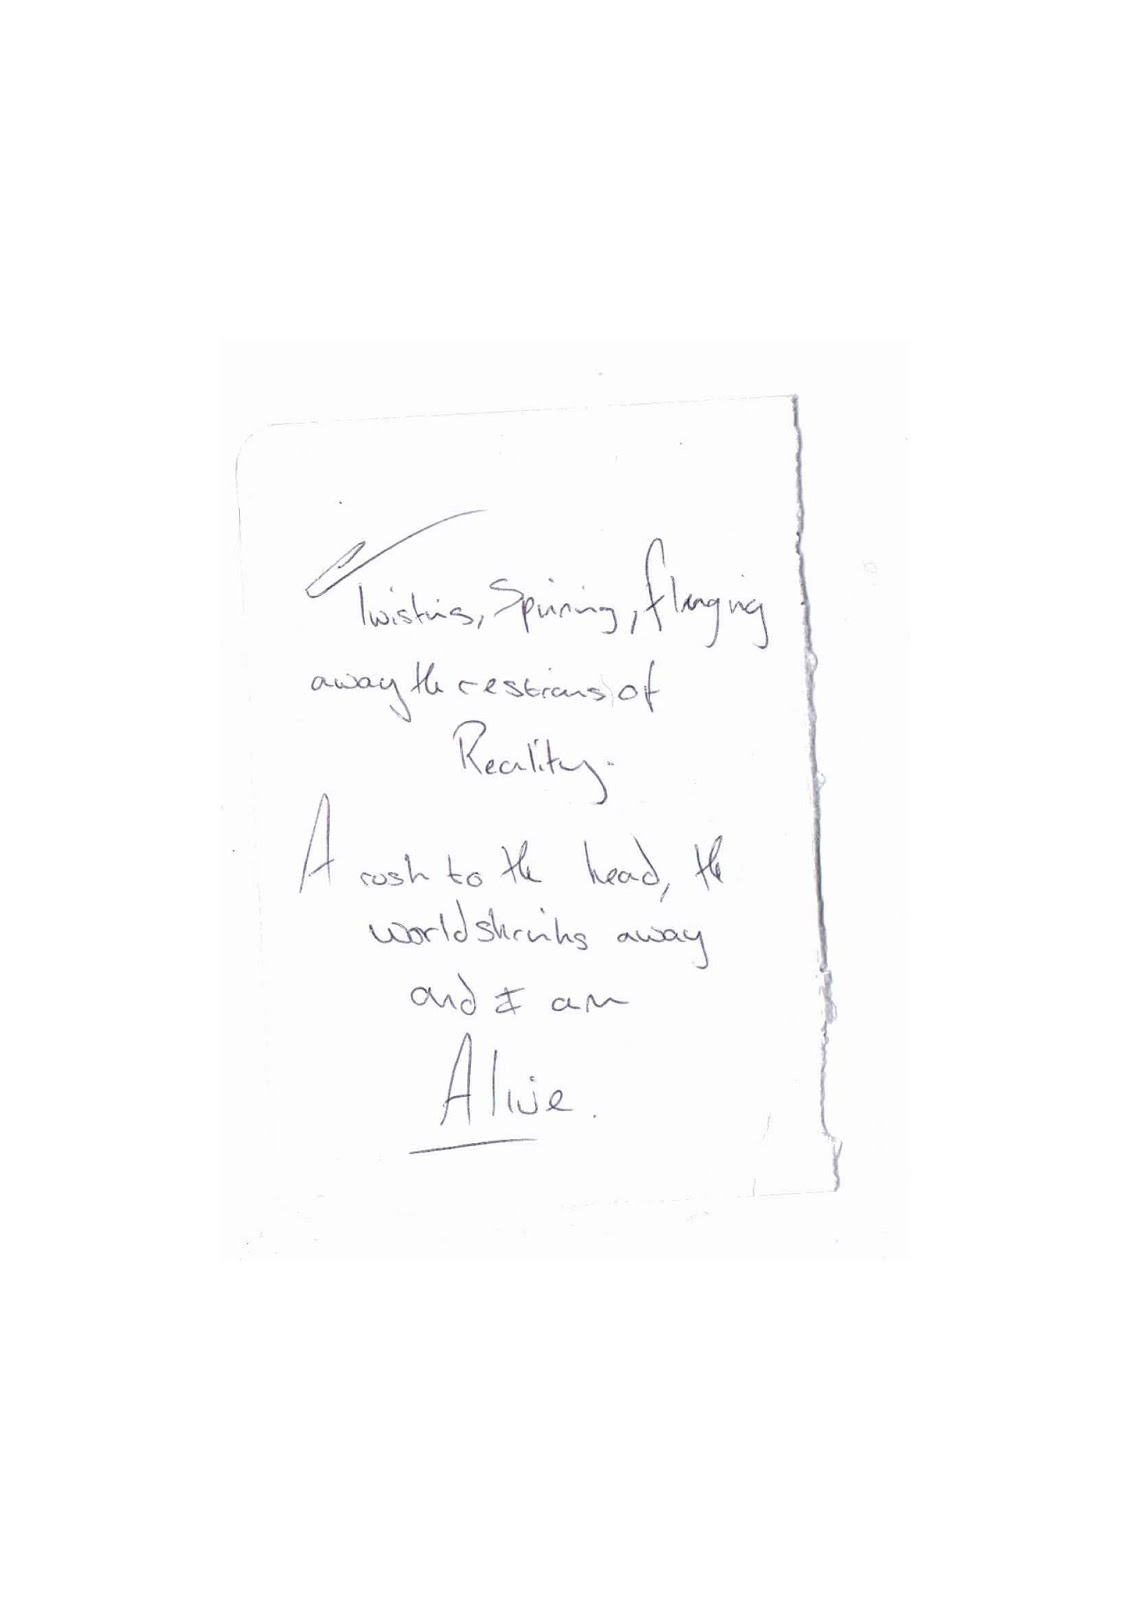 Twisting, Spinning, flinging
away the restrains of
Reality.
A rush to the head, the
world shrinks away
and I am
Alive.